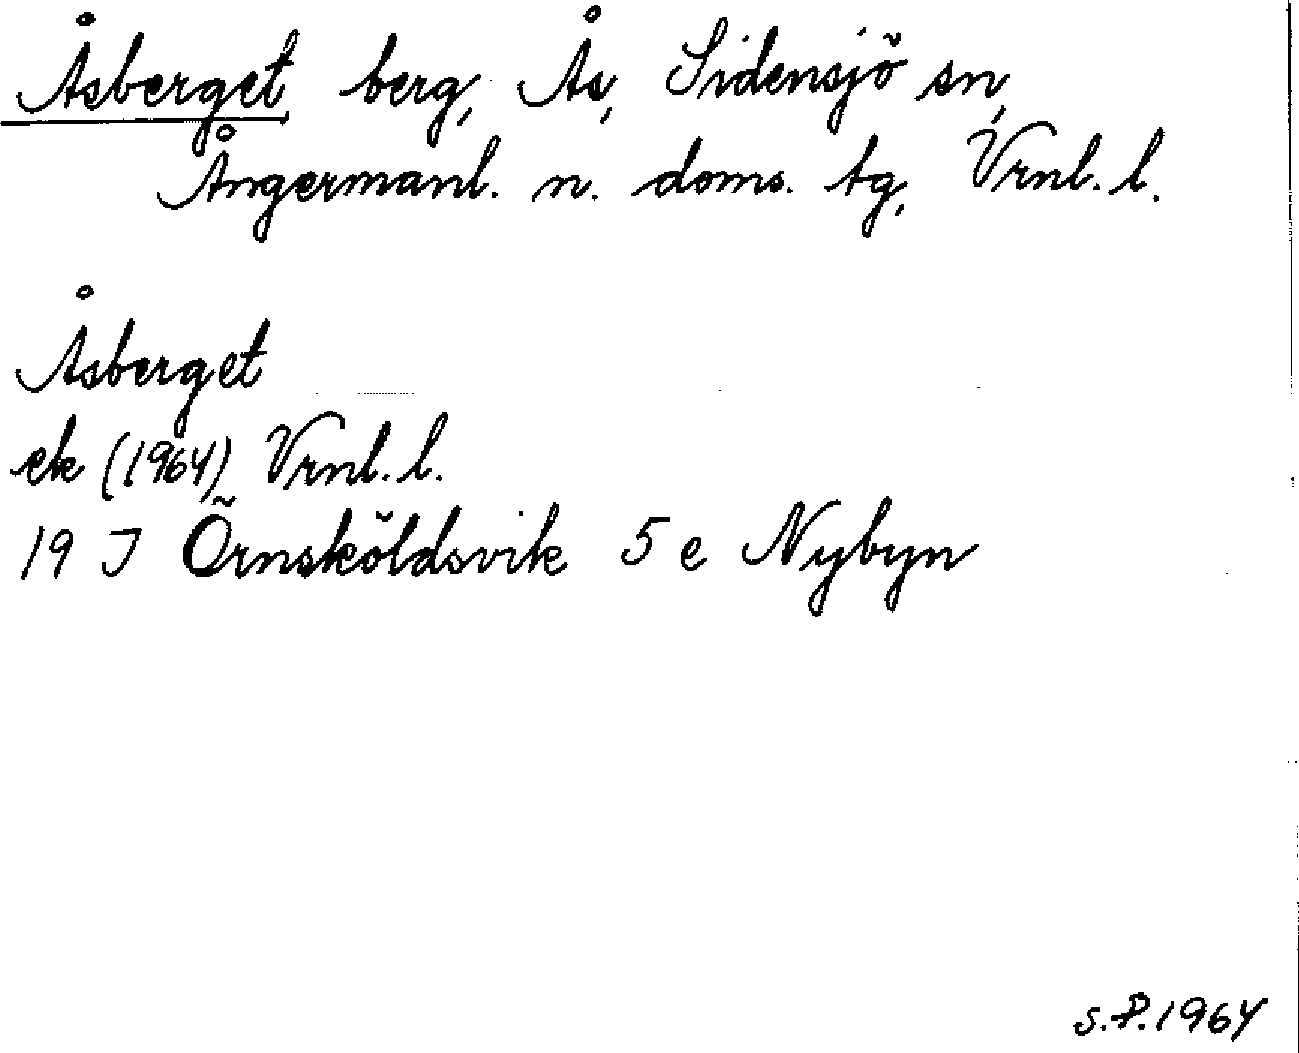 Åsberget berg, Ås, Sidensjö sn,
Ångermanl. n. doms. tg, Vrnl. l.
Åsberget
ek (1964) Vrnl. l.
19 J Örnsköldsvik 5 e Nybyn
S.P. 1964